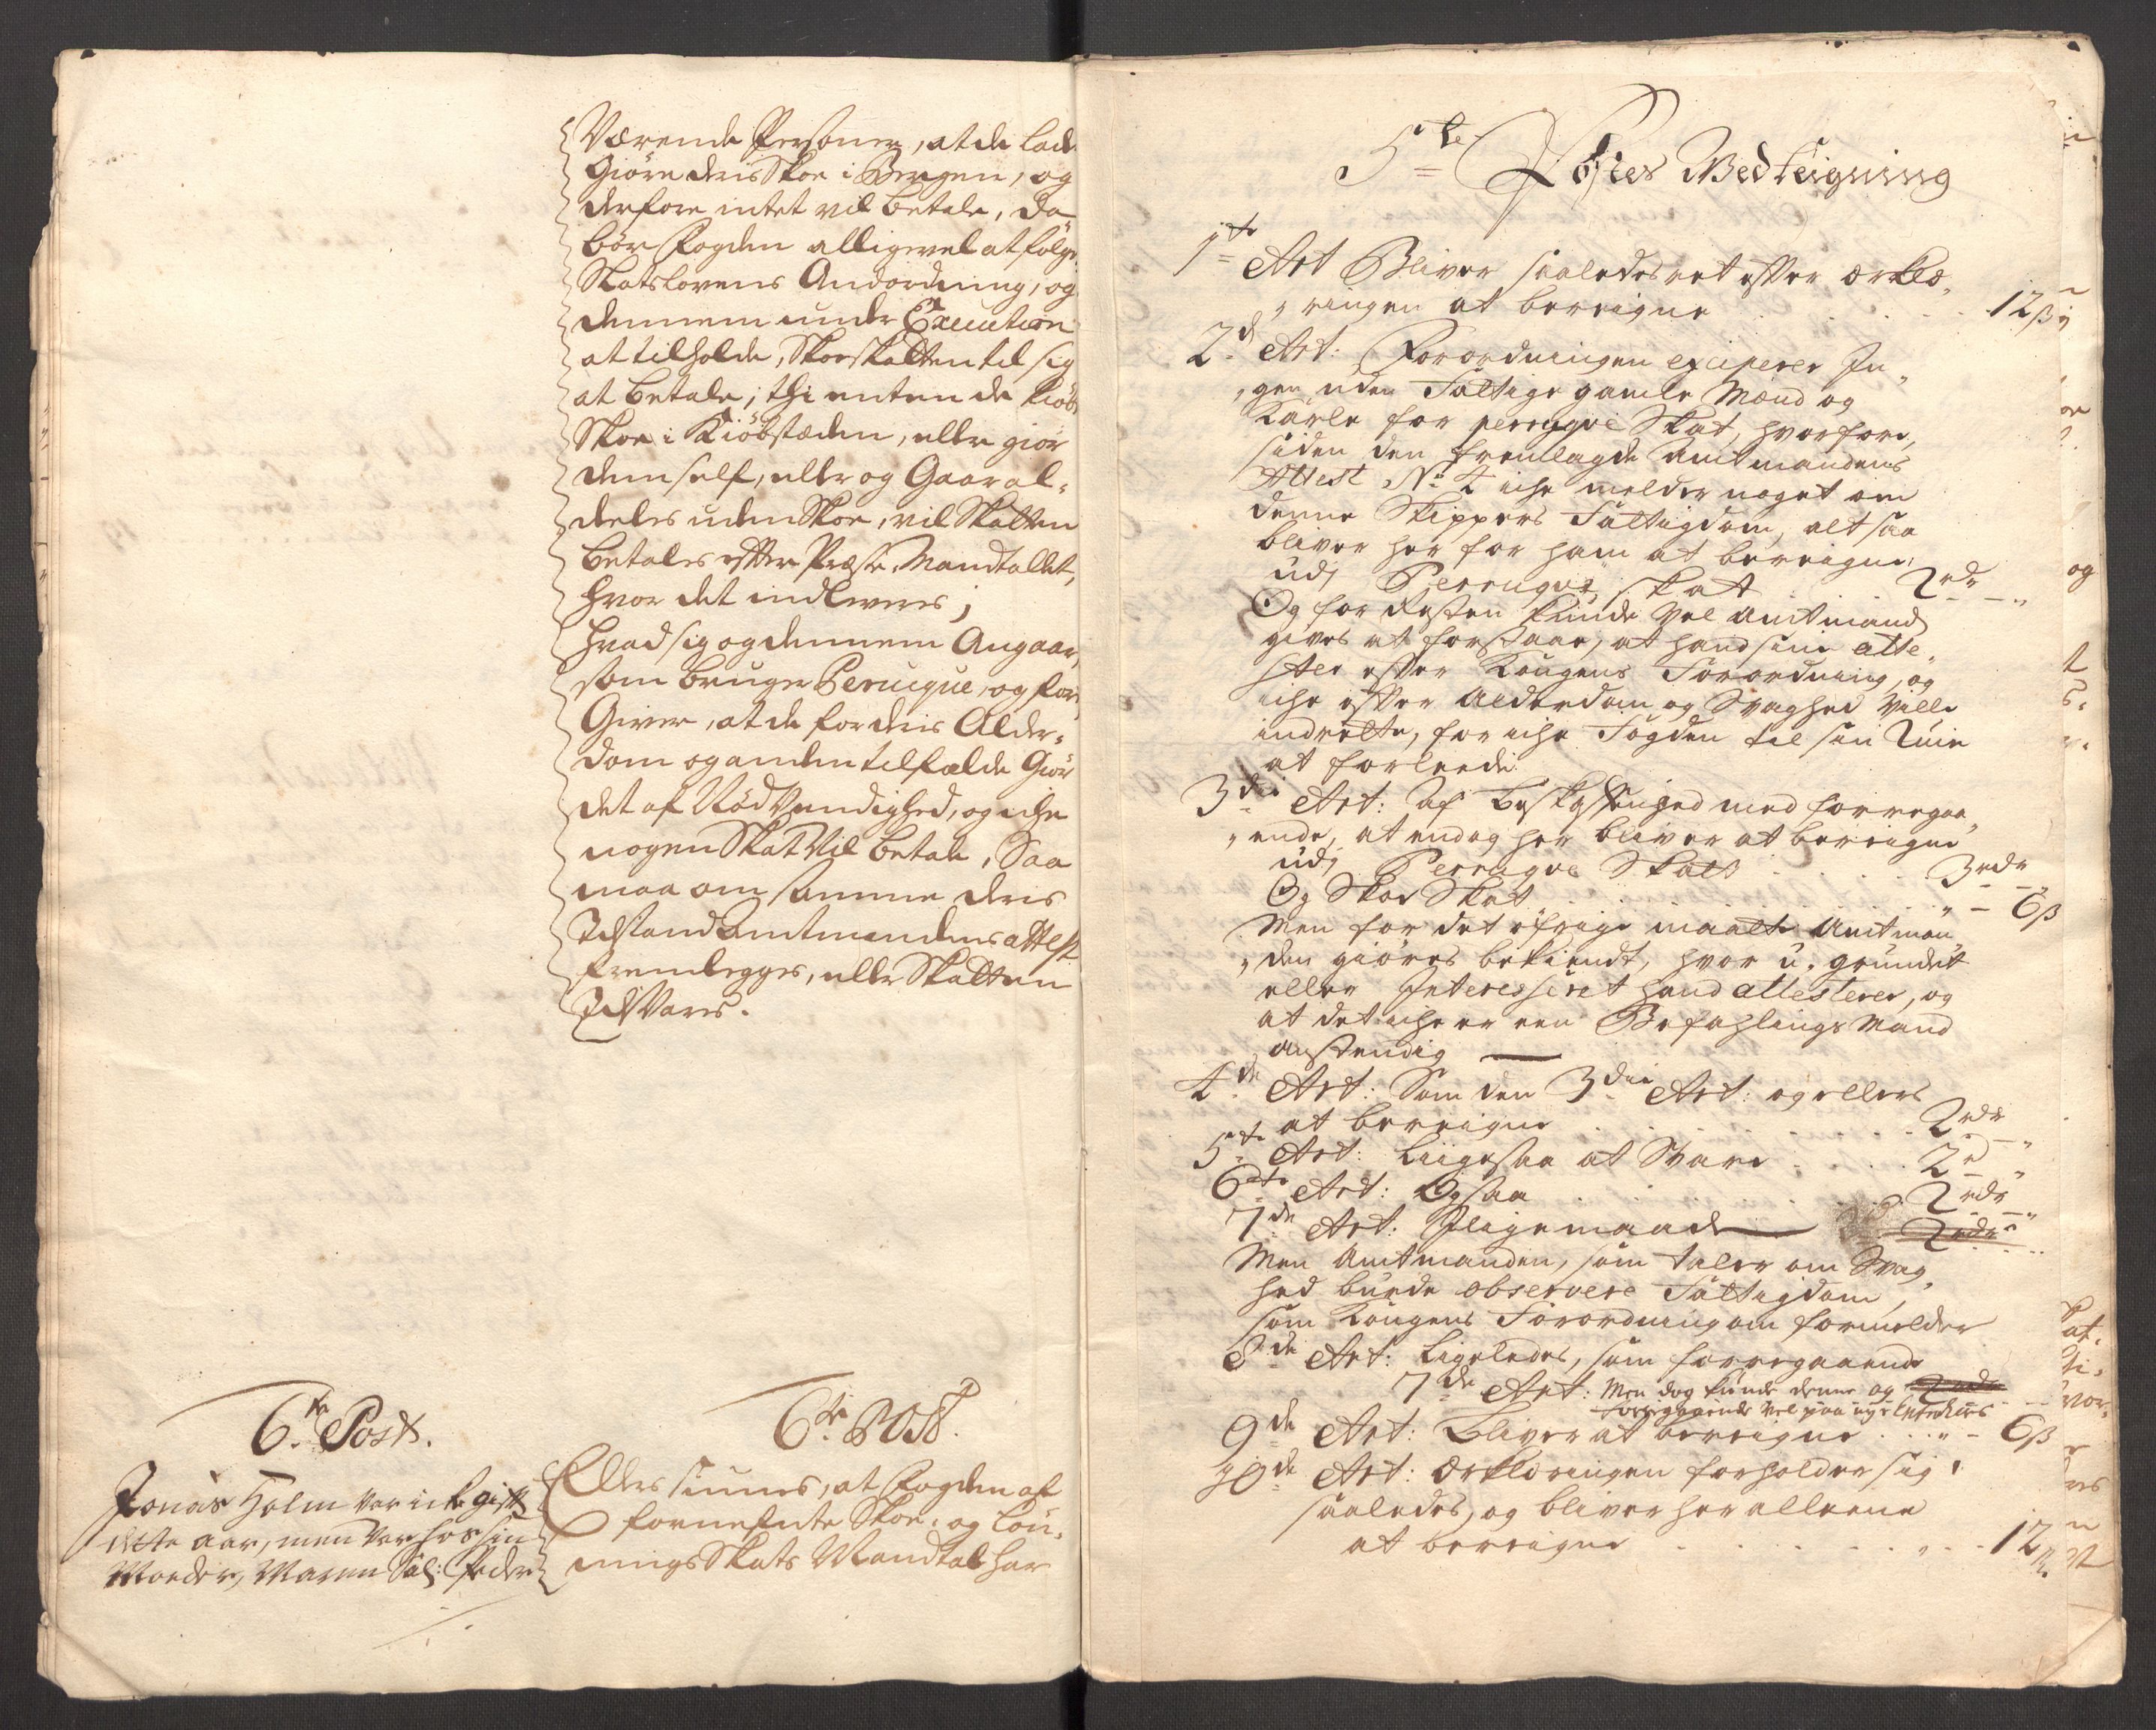 Værende Persohner, at de lade
Giöre deris Skoe i Bergen, og
derfore intet vil betale, da
bör Fogden alligevel at fölge
Skatslovens Anordning, og
dennem under Execution
at tilholde, Skoeskatten til sig
at betale; thi enten de kiöbe
Skoe i Kiöbstæden, eller giör
dem self, eller og Gaar al-
deeles uden Skoe, vil Skatten
betales efter Præste Mandtallet,
hvor det indleveres;
Hvad sig og dennem Angaar,
som bruger Peruique, og for-
Giver, at de for deris Alder-
dom og anden tilfælde Giör
det af Nödvendighed, og iche
nogen Skat Vil betale, Saa
maa om samme deris
Tilstand Amtmandens attest
fremlegges, eller Skatten
Tilsvares.
6te Post.
Jonas Holm var icke gift
dette aar, men var hos sin
Moeder, Maren Sal: Peder
6te Post.
Ellers siunes, at Fogden af
fornefnte Skoe- og Lön-
nings Skats Mandtal har
5te Postes Vedteigning
1te Art Bliver saaledes ret efter ærklæ-
ringen at bereigne 12 β
2d Art: Forordningen exciperer In-
gen uden Fattige gamle Mænd og
Karle for perrugve Skat, hvorfore,
siden den fremlagde Amtmandens
Attest No 4 iche melder noget om
denne Skippers Fattigdom, alt saa
bliver her for ham at bereigne
udj Perrugve skat 2 rdr
Og for Resten kunde Vel Amtmand
gives at forstaae, at hand sine atte-
ster efter Kongens Forordning, og
iche efter Alderdom og Svaghed ville
indrette, for iche Fogden til sin Ruin
at forleede
3die Art: af beskaffenhed med forrega-
ende, at endog her bliver at bereigne
udj Perrugve Skatt 3 rdr
Og Skoe Skat 6 β
Men for det öfrige maatte Amtman-
den giöres bekiendt, hvor u-grundet
eller Interesseret hand attesterer, og
at det iche er een Befahlings Mand
anstendig
4de Art: Som den 3die Art: og ellers
at bereigne 2 rdr
5te Art: Liigesaa at Svare 2 rd
6te Art: Ogsaa 2 rdr
7de Art: Iligemaade 2 rdr
Men Amtmanden, som taler om Svag-
hed burde observere Fattigdom,
som Kongens Forordning om formelder
8de Art: Ligeledes, som forregaaende
7de Art: Men dog kunde denne og 2 rdr
forregaaende vel paa nye
9de Art: Bliver at bereigne 6 β
10de Art: Ærkleringen forholder sig
saaledes, og bliver her alleene
at bereigne 12 β